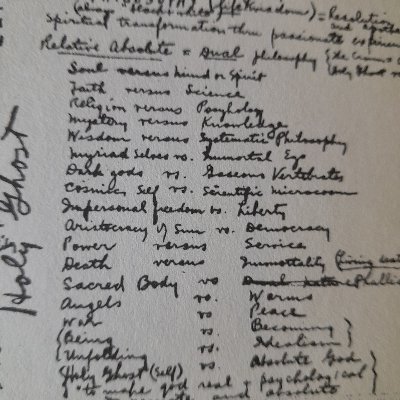 Spiritual transformation thru passionate experience
Relative Absolute = Dual philosophy
Soul versus mind or spirit
Faith versus Science
Religion versus Psychology
Mystery versus Knowledge
Wisdom versus Systematic Philosophy
Myriad Selves vs. Immortal Ego
Dark gods vs. Gaseous Vertebrates
Cosmic Self vs. Scientific microcosm
Impersonal freedom vs. Liberty
Aristocracy of Sun vs. Democracy
Power versus Service
Death versus Immortality
Sacred Body vs Phallic
Angels vs. Worms
War vs. Peace
{Being vs. Becoming}
Unfolding vs. Idealism
Holy Ghost (Self) vs. Absolute God
"to make god real = psychological
and absolute
Holy Ghost